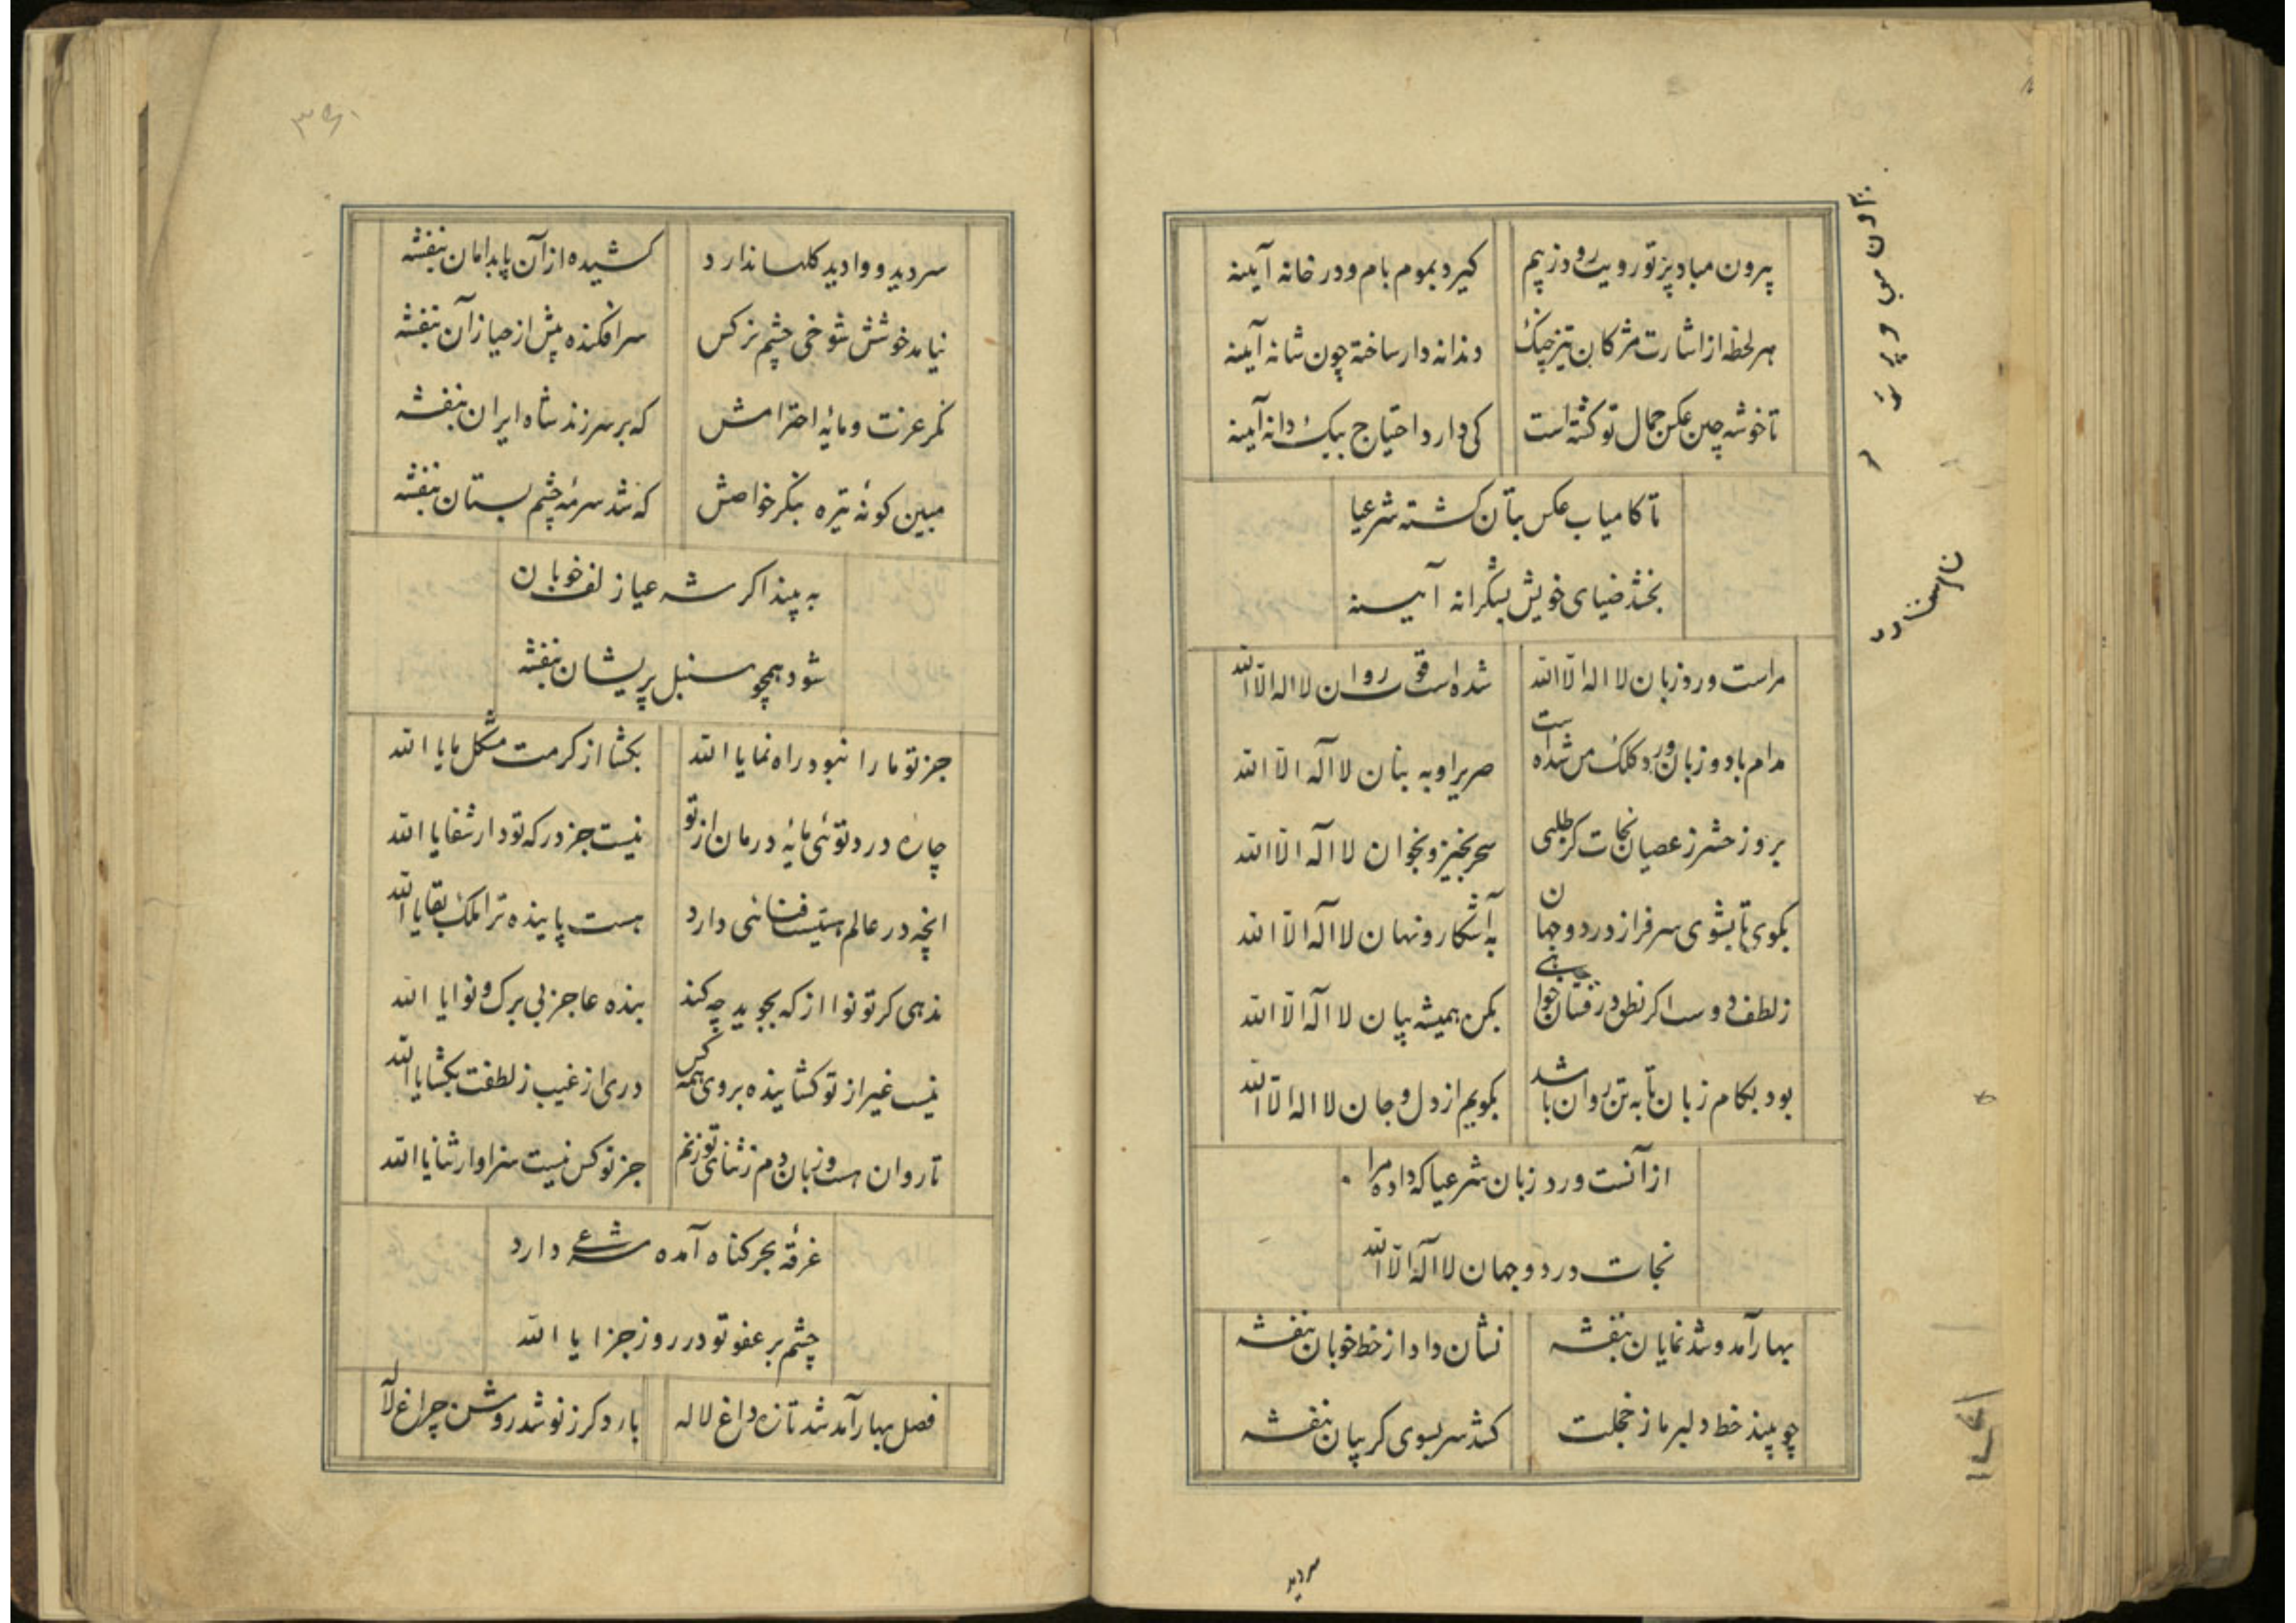 بیرون مباد پرتو رویت رود ز بیم
کیرد بموم بام و در خانه آیینه
هر لحظه از اشارت مژکان تیز چنک
دندانه دار ساخته چون شانه آیینه
تا خوشه چین عکس جمال تو کشته است
کی دارد احتیاج بیک دانه آیینه
تا کامیاب عکس بتان کشته شرعیا
بخشد ضیای خویش بشکرانه آیینه
مراست ورد زبان لا اله الا الله
شده است قوت روان لا اله الا الله
مدام با دو زبان ورد کلک من شده است
صریر او به بنان لا اله الا الله
بروز حشر ز عصیان نجات کر طلبی
سحر بخیز و بخوان لا اله الا الله
بکوی تا بشوی سرفراز در دو جهان
به آشکار و نهان لا اله الا الله
ز لطف دوست اکر نطق درفشان خواهی
بکن همیشه بیان لا اله الا الله
بود بکام زبان تا به تن روان باشد
بکویم از دل و جان لا اله الا الله
از آنست ورد زبان شرعیا که داده مرا
نجات در دو جهان لا اله الا الله
بهار آمد و شد نمایان بنفشه
نشان داد از خط خوبان بنفشه
چو بیند خط دلبر ما ز خجلت
کشد سر بسوی کریبان بنفشه
سر دید
۳۶۰
سر دید و وادید کلها ندارد
کشیده از آن پا بدامان بنفشه
نیامد خوشش شوخی چشم نرکس
سر افکنده پیش از حیا زآن بنفشه
نکر عزت و مایهٔ احترامش
که بر سر زند شاه ایران بنفشه
مبین کونهٔ تیره بنکر خواصش
که شد سرمهٔ چشم بستان بنفشه
به بیند اکر شرعیا زلف خوبان
شود همچو سنبل پریشان بنفشه
جز تو ما را نبود راه نما یا الله
بکشا از کرمت مشکل ما یا الله
چارهٔ درد توئی مایهٔ درمان از تو
نیست جز درکه تو دار شفا یا الله
انچه در عالم هستیست فنائی دارد
هست پاینده ترا ملک بقا یا الله
ندهی کر تو نوا از که بجوید چه کند
بنده عاجز بی برک و نوا یا الله
نیست غیر از تو کشاینده بروی همه کس
دری از غیب ز لطفت بکشا یا الله
تا روان هست و زبان دم ز ثنای تو زنم
جز تو کس نیست سزاوار ثنا یا الله
غرقهٔ بحر کناه آمده شرعی دارد
چشم بر عفو تو در روز جزا یا الله
فصل بهار آمد شد تازه داغ لاله
بار دکر ز نو شد روشن چراغ لاله